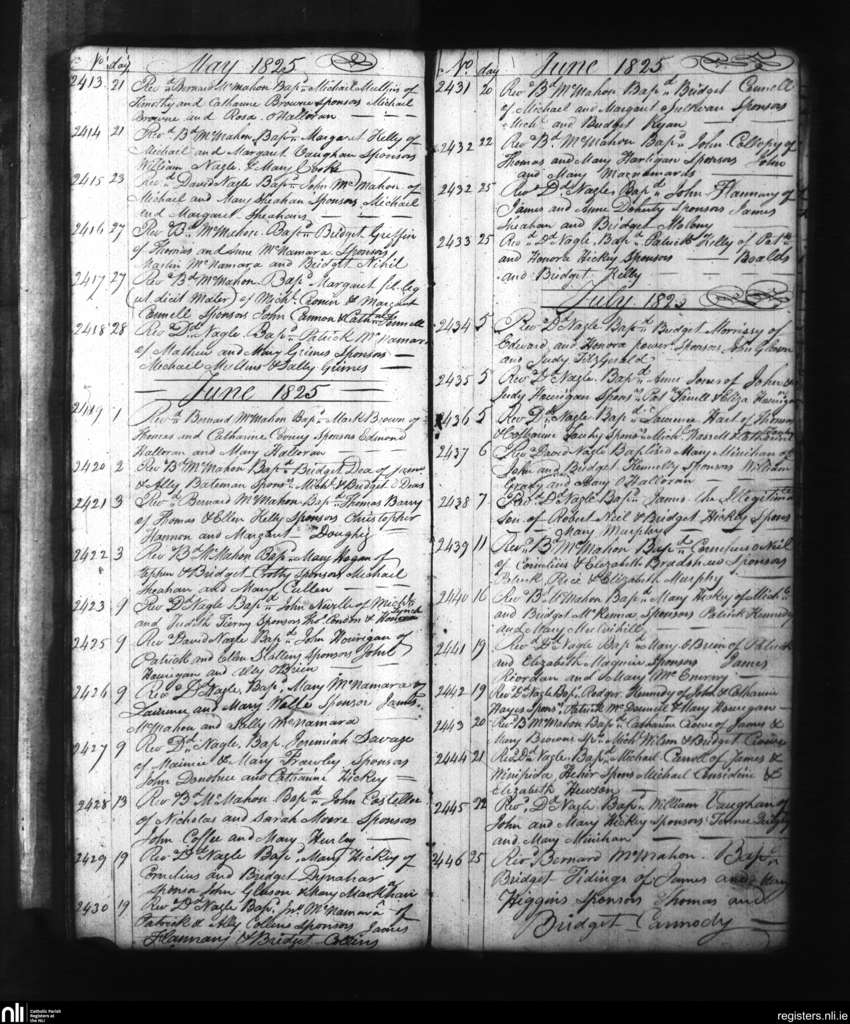 No day May 1825
2413 21 Revd Bernard McMahon Bapd Michael Mullins of
Timothy and Catharine Browne Sponsors Michael
Browne and Rosa OHalloran
2414 21 Revd Bd McMahon Bapd Margaret Kelly of
Michael and Margaret Vaughan Sponsors
William Nagle & Mary Cooke
2415 23 Revd David Nagle Bapd John McMahon of
Michael and Mary Sheahan Sponsors Michael
and Margaret Sheahan
2416 27 Revd Bd McMahon Bapd Bridget Griffin
of Thomas and Anne McNamara Sponsors
Martin McNamara and Bridget Nihil
2417 27 Revd Bd McMahon Bapd Margaret
(ut dicit Mater) of Michl & Margaret
Connell Sponsors John Cannon & Cathn
2418 28 Revd Dd Nagle Bapd Patrick McNamara
of Mathew and Mary Grimes Sponsors
Michael Mullins & Sally Grimes
June 1825
2419 1 Revd Bernard McMahon Bapd Mark Brown of
Thomas and Catharine Sponsors Edmond
Halloran and Mary Halloran
2420 2 Revd Bd McMahon Bapd Bridget Dea of
& Ally Bateman Sponsrs Michl & Bridget Deas
2421 3 Revd Bernard McMahon Bapd Thomas Barry
of Thomas & Ellen Kelly Sponsors Christopher
Hannon and Margaret
2422 3 Revd Bd McMahon Bapd Mary Hogan of
Stephen & Bridget Crotty Sponsors Michael
Sheahan and Mary Cullen
2423 9 Revd D Nagle Bapd John Neville of Michl
and Judith Tierny Sponsors Thos Condon & Honora Lynch
2425 9 Revd David Nagle Bapd John Hourigan of
Patrick and Ellen Slattery Sponsors John
Hourigan and OBrien
2426 9 Revd D Nagle Bapd Mary McNamara of
Laurence and Mary Sponsors James
McMahon and Sally McNamara
2427 9 Revd Dd Nagle Bapd Jeremiah Savage
of & Mary Frawley Sponsors
John Donohue and Catharine Hickey
2428 13 Revd Bd McMahon Bapd John Costelloe
of Nicholas and Sarah Moore Sponsors
John Coffee and Mary Hurly
2429 19 Revd Dd Nagle Bapd Mary Hickey of
Cornelius and Bridget
Sponsors John Gleason & Mary Markham
2430 19 Revd Dd Nagle Bapd Jno McNamara of
Patrick & Ally Collins Sponsors James
Flannany & Bridget Collins
No day June 1825
2431 20 Revd Bd McMahon Bapd Bridget Connell
of Michael and Margaret Sponsors
Michl and Bridget Ryan
2432 22 Revd Bd McMahon Bapd John Collopy of
Thomas and Mary Hartigan Sponsors John
and Mary Macnamara
2432 25 Revd Dd Nagle Bapd John Flannary of
James and Anne Doherty Sponsors James
Sheahan and Bridget Molony
2433 25 Revd Dd Nagle Bapd Patrick Kelly of Patk
and Honora Hickey Sponsors
and Bridget Kelly
July 1825
2434 5 Revd Dd Nagle Bapd Bridget Morrissy of
Edward and Honora power Sponsors John Gleeson
and Judy Fitzgerald
2435 5 Revd Dd Nagle Bapd Anne Jones of John &
Judy Hourigan Sponsrs Pat & Eliza Hourigan
2436 5 Revd Dd Nagle Bapd Laurence Hart of Thomas
& Catharine Sponsrs Michl
2437 6 Revd David Nagle Baptised Mary Minihan of
John and Bridget Kennelly Sponsors William
Grady and Mary OHalloran
2438 7 Revd Dd Nagle Bapd James the Illegitimate
Son of Robert Neil & Bridget Hickey Sponsr
Mary Murphy
2439 11 Revd Bd McMahon Bapd Cornelius O Neil
of Cornelius & Elizabeth Bradshaw Sponsors
Patrick Rice & Elizabeth Murphy
2440 16 Revd Bd McMahon Bapd Mary Hickey of Michl
and Bridget McKenna Sponsors Patrick Kennedy
and Mary
2441 19 Revd Dd Nagle Bapd Mary OBrien of Patrick
and Elizabeth Maguire Sponsors James
Reordan and Mary McEnerny
2442 19 Revd Dd Nagle Bapd Rodger Kennedy of John & Catharine
Hayes Sponsrs Patrick McDonnell & Mary Hourigan
2443 20 Revd Bd McMahon Bapd Catharine Crowe of James &
Mary Browne Spn Michl Wilson & Bridget Crowe
2444 21 Revd Dd Nagle Bapd Michael Carroll of James &
Winifrida Hehir Spons Michael Considine &
Elizabeth Hewson
2445 22 Revd Dd Nagle Bapd William Vaughan of
John and Mary Hickey Sponsors
and Mary Minihan
2446 25 Revd Bernard McMahon Bapd
Bridget Fidings of James and Mary
Higgins Sponsors Thomas and
Bridget Carmody
nli
Catholic Parish
Registers at
the NLI
registers.nli.ie